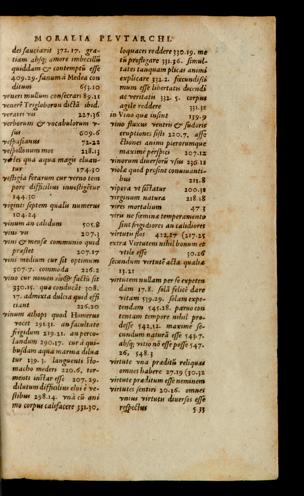 MORALIA PLVTARCHI
dei sauciarit 372.17. gra-
tiam absq; amore imbecillū
quiddam & contemptū esse
409.29. sanum à Medea con
ditum 653.10
veneri mullum consecrari 89.12
veneris dicta ibid.
227.36
verborum & vocabulorum v-
sus 609.6
vespasianus 72.22
mos 218.13
vestes qua aqua magis eluan-
tur 174.30
vestigia ferarum cur verno tem
pore difficilius inuestigētur
144.30
viginti septem qualis numerus
104.24
vinum an calidum 505.8
vini vis 207.3
vini & mensæ communio quid
præstet 207.17
vini medium cur sit optimum
507.7. commoda 226.2
vino cur nomen
330.15. qua conducāt 308.
17. admixta dulcia quod effi
ciant 226.20
vinum æthops quod Homerus
vocet 291.31. an facultate
frigidum 219.21. an perco-
landum 290.17. cur à qui-
busdam aqua marina dilua
tur 139.3. languenti sto-
macho mederi 220.6. tor-
menti instar esse 207.29.
dilutum difficilius elui è ve-
stibus 298.14. vnà cū ani
mo corpus calefacere 331.30.
loquaces reddere 330.19. me
tū profligare 331.36. simul-
tates tanquam plicas animi
explicare 332.2.
mum esse libertatis dicendi
ac veritatis 332.5. corpus
agile reddere 331.31
in Vino quæ insint 139.9
vino fluxus ventris & sudoris
eruptiones sisti 220.7. affe
ctiones animi pleromque
maxime perspici 207.12
vinorum diuersorū vsus 236.11
viola quid prosint conuiuanti-
bus 211.8
vipera vesiccatur 200.31
virginum natura 218.18
vires mortalium 47.5
viri ne fœmina temperamento
sint frigidiores an calidiores
virtutis fons 422.27 (217.25
extra Virtutem nihil bonum et
vtile esse 30.26
secundum virtutē acta qualia
13.21
virtutem nullam per se expeten
dam 17.8. solā felicē dare
vitam 539.29. solam expe-
tendam 545.28. parno con
tentam tempore nihil pro-
desse 542.12. maxime se-
cundum naturā esse 549.7.
absq; vitio nō esse posse 547.
26, 548.3
virtute vna præditū reliquas
omnes habere 27.19 (30.32
virtute præditum esse neminem
virtutes sentiri 20.36. omnes
vnius virtutis diuersos esse
respectus 5.33